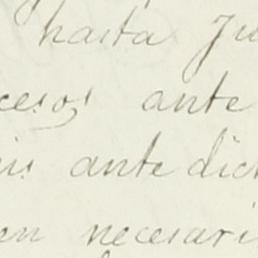 hasta Ju
cesos ante
is ante dich
en necesari